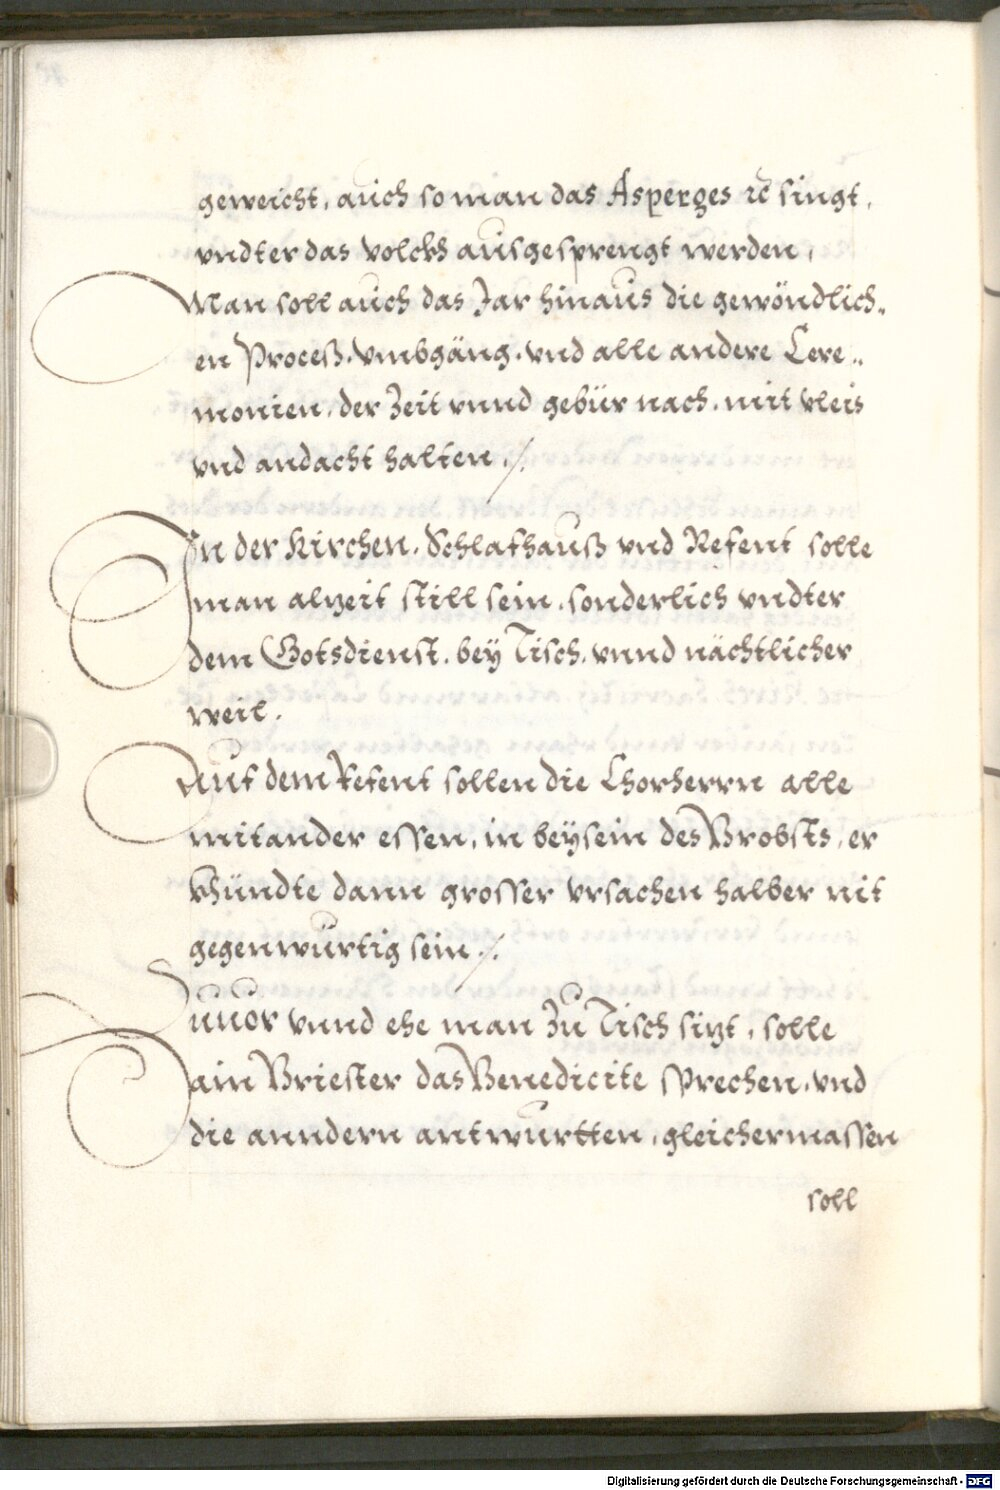 geweicht, auch so man das Asperges ꝛc singt,
vndter das volckh ausgesprengt werden,
Man soll auch das Jar hinaus die gewöndlich„
en Proceß, vmbgäng, vnd alle andere Cere„
monien, der Zeit vnnd gebür nach, mit vleis
vnd andacht halten ./.
In der Kirchen, Schlafhauß vnd Refent solle
man alzeit still sein, sonderlich vndter
dem Gotsdienst, bey Tisch, vnnd nächtlicher
weil.
Auf dem Refent sollen die Chorherrn alle
mitander essen, in beysein des Brobsts, er
khündte dann grosser vrsachen halber nit
gegenwurtig sein ./.
Zuuor vnnd ehe man Zu Tisch sizt, solle
ain Briester das Benedicite sprechen, vnd
die anndern antwurtten, gleichermassen
soll
Digitalisierung gefördert durch die Deutsche Forschungsgemeinschaft - DFG